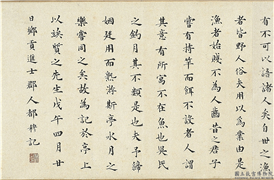 不可以誇諸人矣自世之漁
者皆野人俗夫用以為業由是
漁者始賤不為人齒昔之君子
嘗有持竿而餌不設者人謂
其意有所寓不在魚也吳氏
之釣月其不類是也夫予諦
姻廷用而熟將斯亭水月之
樂嘗同之矣故為記於亭上
以俟質之先生戊午四月廿
日鄉貢進士郡人都穆記